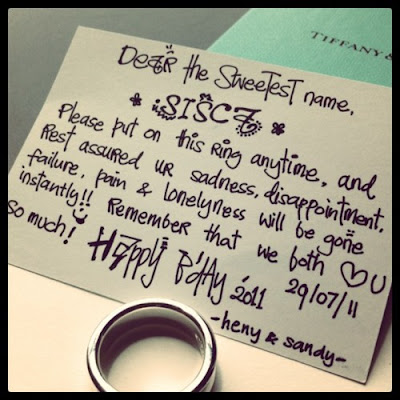 TIFFANY &
Dear the sweetest name,
* SISCZ *
Please put on this ring anytime, and
Rest assured ur sadness, disappointment,
failure, pain & lonelyness will be gone
instantly!! Remember that we both ♡ U
so much!
Happy B'dAy '2011 29/07/11
-heny & sandy-